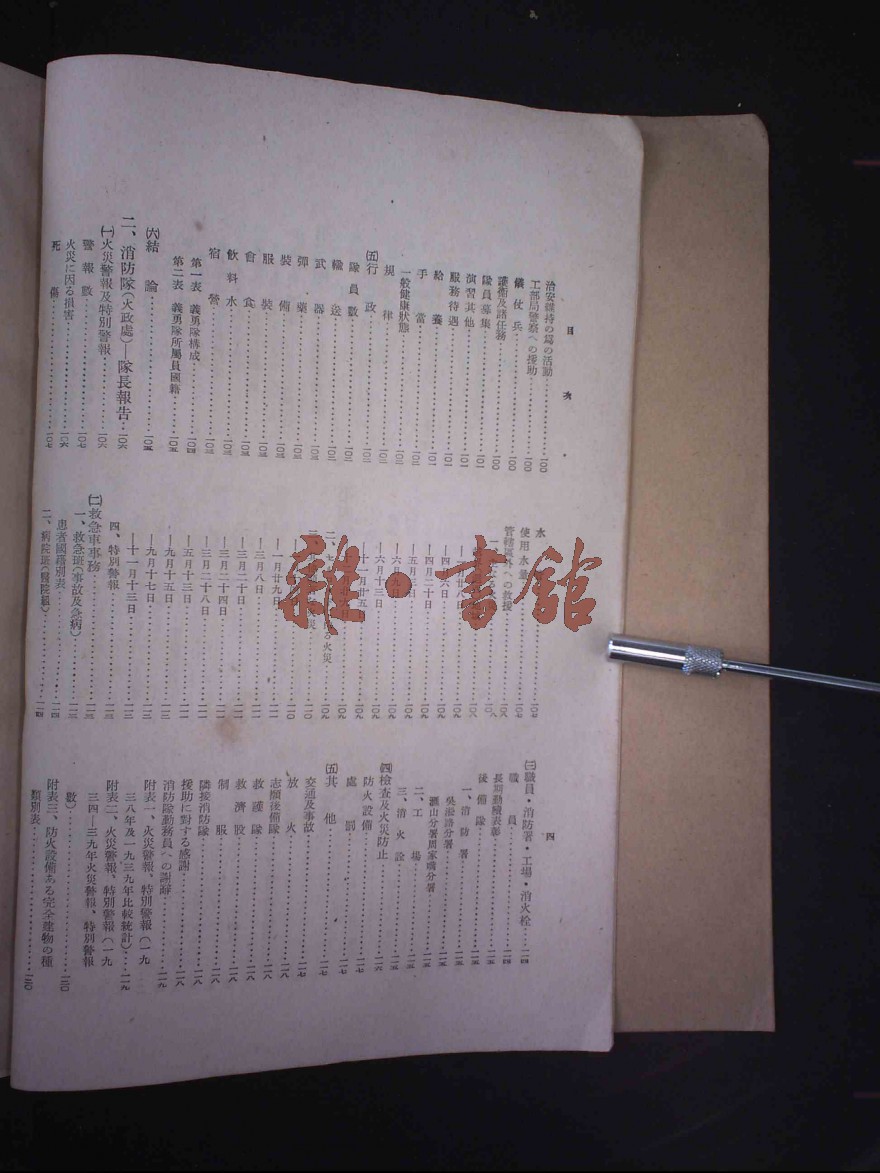 目次
四
治安維持の爲の活動……一〇〇
工部局警察への援助……一〇〇
儀仗兵……一〇〇
護衞及諸任務……一〇〇
隊員募集……一〇一
演習其他……一〇一
服務待遇……一〇一
給養……一〇一
手當……一〇二
一般健康狀態……一〇二
規律……一〇二
(五)行政……一〇二
隊員數……一〇二
輸送……一〇二
武器……一〇三
彈藥……一〇三
裝備……一〇三
服裝……一〇三
會食……一〇三
飮料水……一〇三
宿營……一〇三
第一表 義勇隊構成……一〇四
第二表 義勇隊所屬員國籍……一〇五
(六)結論……一〇五
二、消防隊(火政處)—隊長報告……一〇六
(一)火災警報及特別警報……一〇六
警報數……一〇七
火災に因る損害……一〇六
死傷……一〇七
水……一〇七
使用水量……一〇七
管轄區外への救援……一〇八
—四月二十日……一〇九
—五月八日……一〇九
—六月十三日……一〇九
—一月廿九日……一一〇
—三月八日……一一一
—三月二十日……一一一
—三月二十四日……一一一
—三月二十八日……一一一
—五月十三日……一一一
—九月十五日……一一二
—九月十七日……一一二
—十一月十三日……一一二
四、特別警報……一一三
(二)救急車事務……一一三
一、救急班(事故及急病)……一一三
患者國籍別表……一一四
二、病院班(醫院組)……一一四
(三)職員・消防署・工場・消火栓……一一四
職員……一一四
長期勤續表彰……一一五
後備隊……一一五
一、消防署……一一五
吳淞路分署……一一五
滙山分署周家嘴分署……一一五
二、工場……一一五
三、消火栓……一一五
(四)檢査及火災防止……一一六
防火設備……一一七
處罰……一一七
(五)其他……一一七
交通及事故……一一七
放火……一一八
志願後備隊……一一八
救護隊……一一八
救濟股……一一八
制服……一一八
隣接消防隊……一一八
援助に對する感謝……一一八
消防隊勤務員への謝辭……一一九
附表一、火災警報、特別警報(一九
三八年及一九三九年比較統計)……一一九
附表二、火災警報、特別警報(一九
三四—三九年火災警報、特別警報
數)……一二〇
附表三、防火設備ある完全建物の種
類別表……一二〇
雜·書館